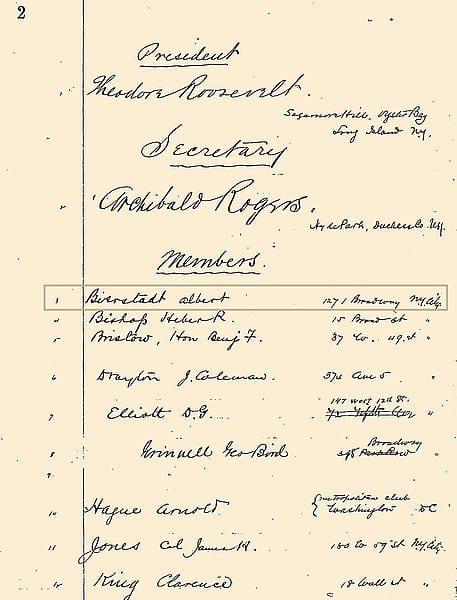 2
President
1 Theodore Roosevelt.
Sagamore Hill, Oyster Bay
Long Island N.Y.
Secretary
Archibald Rogers.
Hyde Park, Duchess Co. N.Y.
Members.
3 Bierstadt Albert 1271 Broadway N.Y. City.
4 Bishop Heber R. 15 Broad St "
5 Bristow, Hon Benj F. 37 W. 49 St "
6 Drayton J. Coleman. 374 Ave 5 "
147 West 12th St.
7 Elliott D.G. Fifth Ave "
Broadway
8 Grinnell Geo Bird Park Row "
9 "
10 Hague Arnold { Metropolitan Club
Washington DC
11 Jones Col James H. St N.Y. City.
12 King Clarence 18 Wall St "